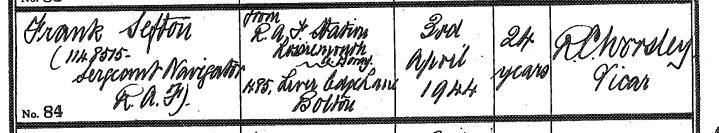 Frank Sefton
(1148575-
Sergeant Navigator
R.A.F).
No. 84
from
R.A.F. Station
Lossiemouth
485, Lever Edge Lane
Bolton
3rd
April
1944
24
years
R.C. Worsley
Vicar